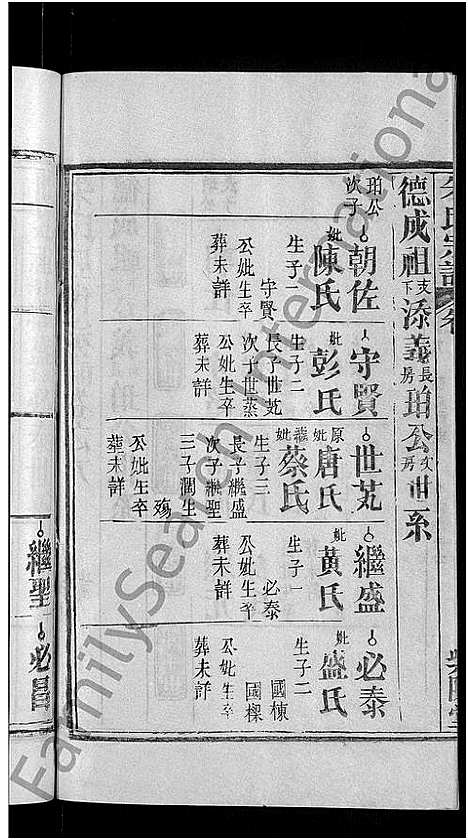 朱氏宗譜 卷
德成祖支下添義長房珀公次房世系
珀公次子
朝佐
妣陳氏
生子一
守賢
公妣生卒
葬未詳
守賢
妣彭氏
生子二
長子世芄
次子世蒸
公妣生卒
葬未詳
世芄
原妣唐氏
繼妣蔡氏
生子三
長子繼盛
次子繼聖
三子潤生
殤
公妣生卒
葬未詳
繼盛
妣黃氏
生子一
必泰
公妣生卒
葬未詳
必泰
妣盛氏
生子二
國棟
國樑
公妣生卒
葬未詳
繼聖
必昌
FamilySearch International